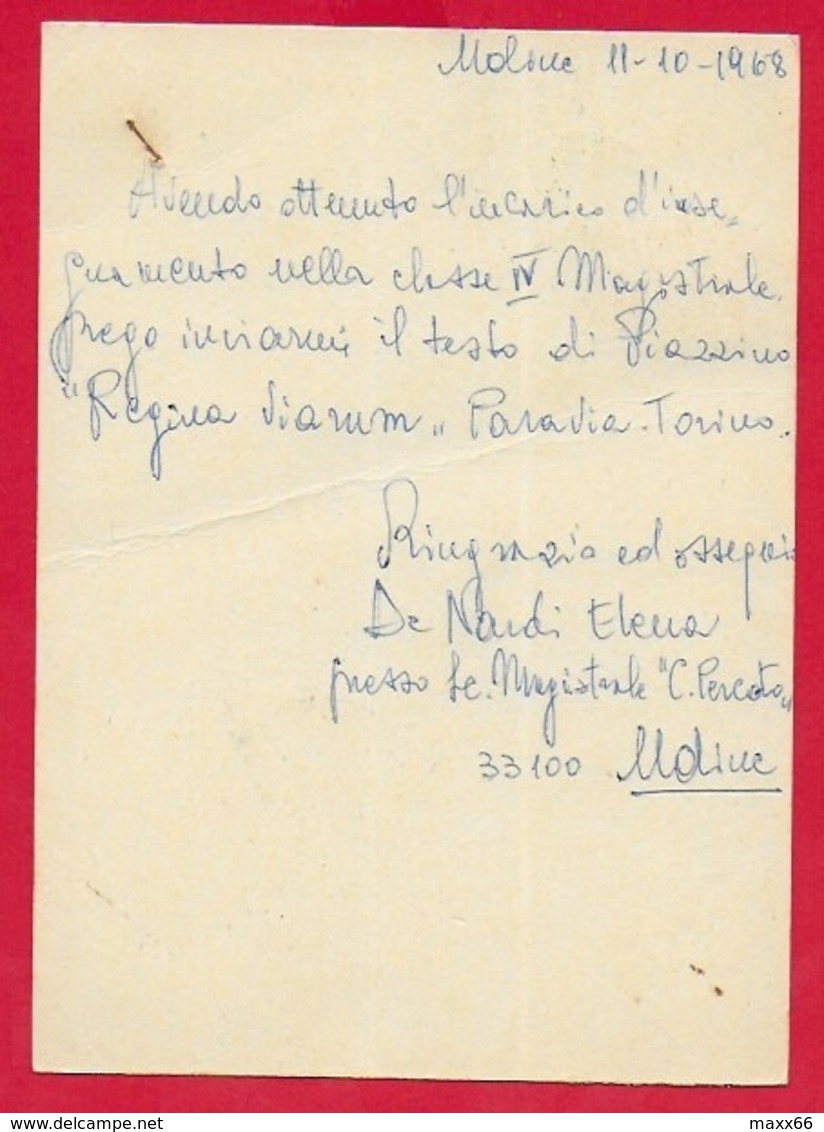 Udine 11-10-1968
Avendo ottenuto l'incarico d'inse=
gnamento nella classe IV Magistrale
prego inviarmi il testo di Piazzino
"Regina Viarum" Paravia-Torino.
Ringrazio ed ossequio
De Nardi Elena
presso Sc. Magistrale "C. Percoto"
33100 Udine
delcampe.net
maxx66